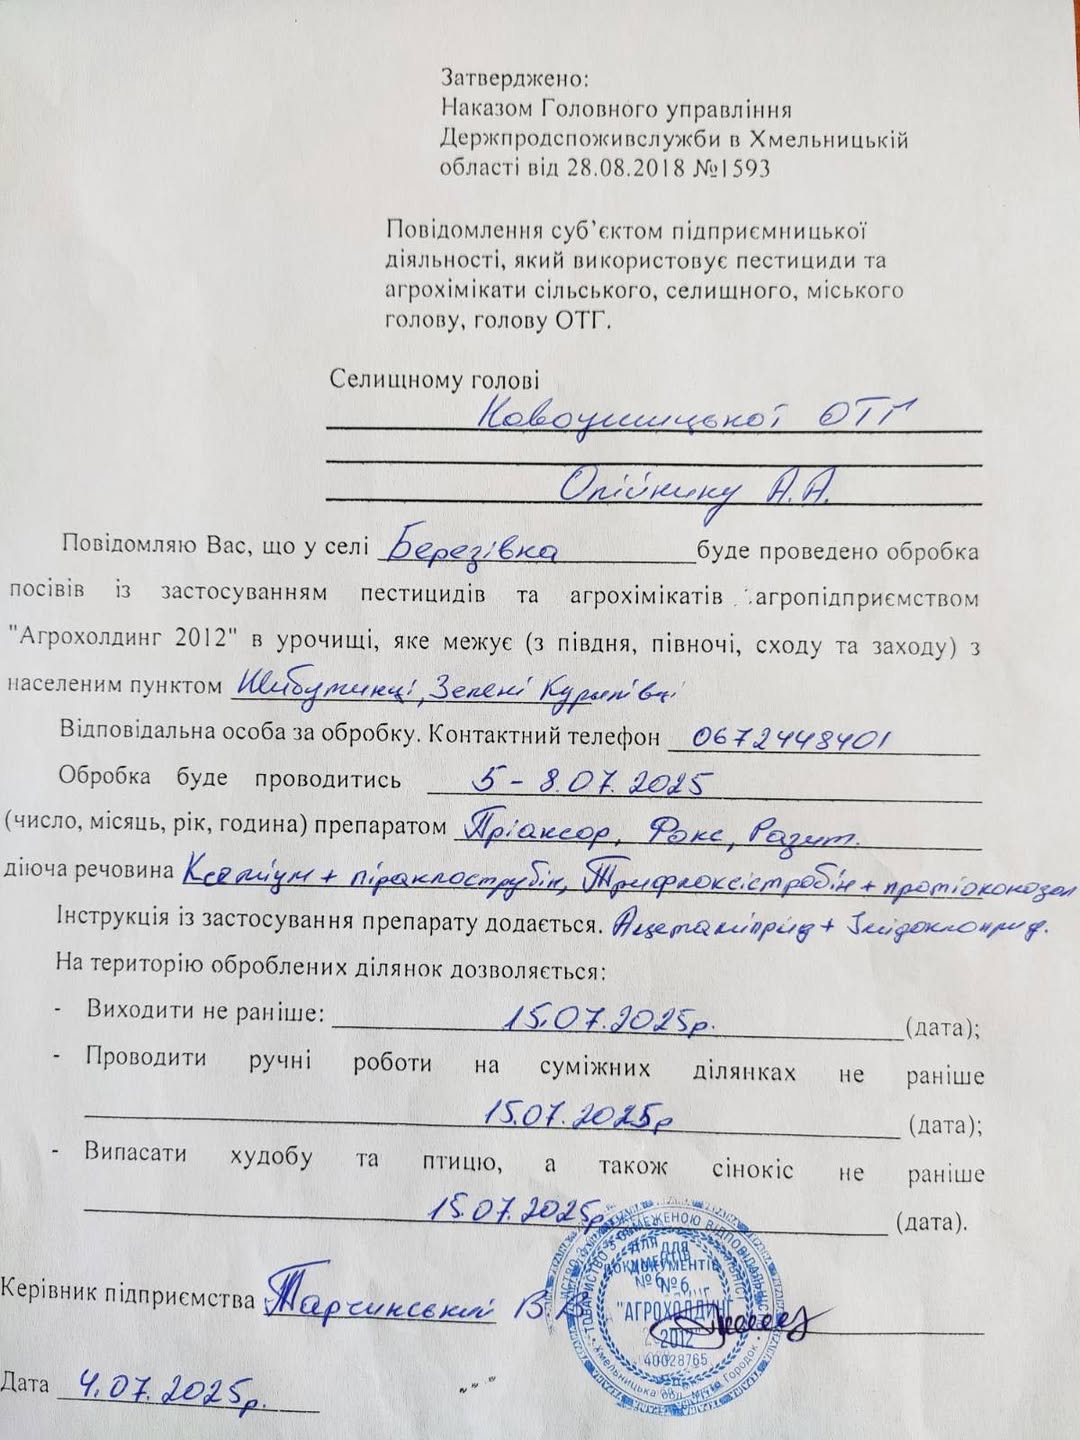 Затверджено:
Наказом Головного управління
Держпродспоживслужби в Хмельницькій
області від 28.08.2018 №1593
Повідомлення суб’єктом підприємницької
діяльності, який використовує пестициди та
агрохімікати сільського, селищного, міського
голову, голову ОТГ.
Селищному голові
Новоушицької ОТГ
Олійнику А.А.
Повідомляю Вас, що у селі Березівка буде проведено обробка
посівів із застосуванням пестицидів та агрохімікатів агропідприємством
"Агрохолдинг 2012" в урочищі, яке межує (з півдня, півночі, сходу та заходу) з
населеним пунктом Шебутинці, Зелені Курилівці
Відповідальна особа за обробку. Контактний телефон 0672448401
Обробка буде проводитись 5 - 8.07.2025
(число, місяць, рік, година) препаратом Пріаксор, Фокс, Разит.
діюча речовина Ксеміум + піраклострубін, Трифлоксістробін + протіоконазол
Інструкція із застосування препарату додається. Ацетаміприд + Імідоклоприд.
На територію оброблених ділянок дозволяється:
- Виходити не раніше: 15.07.2025р. (дата);
- Проводити ручні роботи на суміжних ділянках не раніше
15.07.2025р (дата);
- Випасати худобу та птицю, а також сінокіс не раніше
15.07.2025р (дата).
Керівник підприємства Тарчинський В.В
ТОВАРИСТВО З ОБМЕЖЕНОЮ ВІДПОВІДАЛЬНІСТЮ
ДЛЯ
ДОКУМЕНТІВ
№6
"АГРОХОЛДИНГ
2012"
40028765
Хмельницька обл., місто Городок
Дата 4.07.2025р.